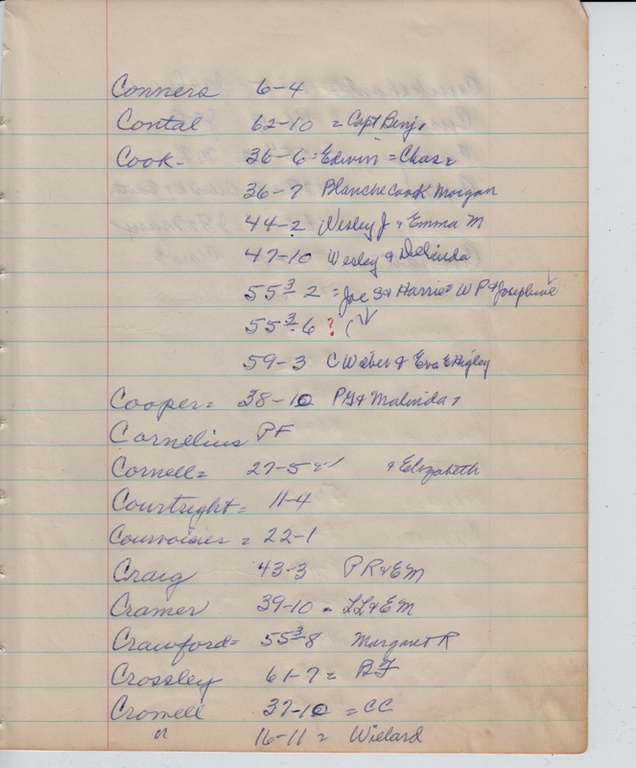 Conners 6-4
Contal 62-10 = Capt Benj.
Cook- 36-6 = Edwin = Chas =
36-7 Blanche Cook Morgan
44-2 Wesley J & Emma M
47-10 Wesley & Delinda
55 3-2 = Joe S & Harriet W P & Josephine
55 3-6 ? (
59-3 C Weber & Eva E Higley
Cooper = 38-10 P G & Malinda
Cornelius PF
Cornell = 27-5 & Elizabeth
Courtright = 11-4
Courvoisier = 22-1
Craig 43-3 P R & E M
Cramer 39-10 - L L & E M
Crawford = 55 3-8 Margaret R
Crossley 61-7 = B F
Cromell 37-10 = CC
or 16-11 = Wielard